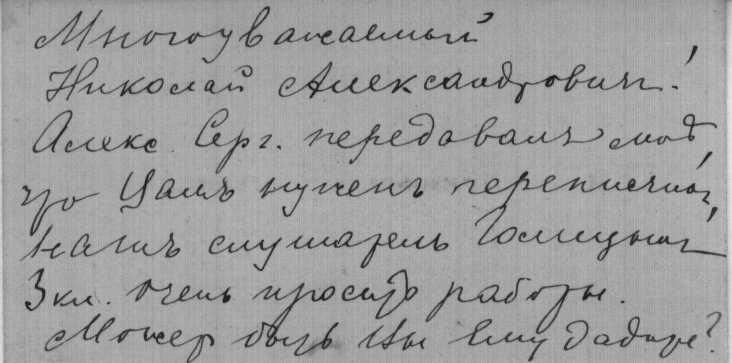 Многоуважаемый
Николай Александровичъ!
Алекс. Серг. передавалъ мнѣ,
что Вамъ нуженъ переписчикъ,
нашъ слушатель Голицынъ
3 кл. очень проситъ работы.
Можетъ быть Вы ему дадите?